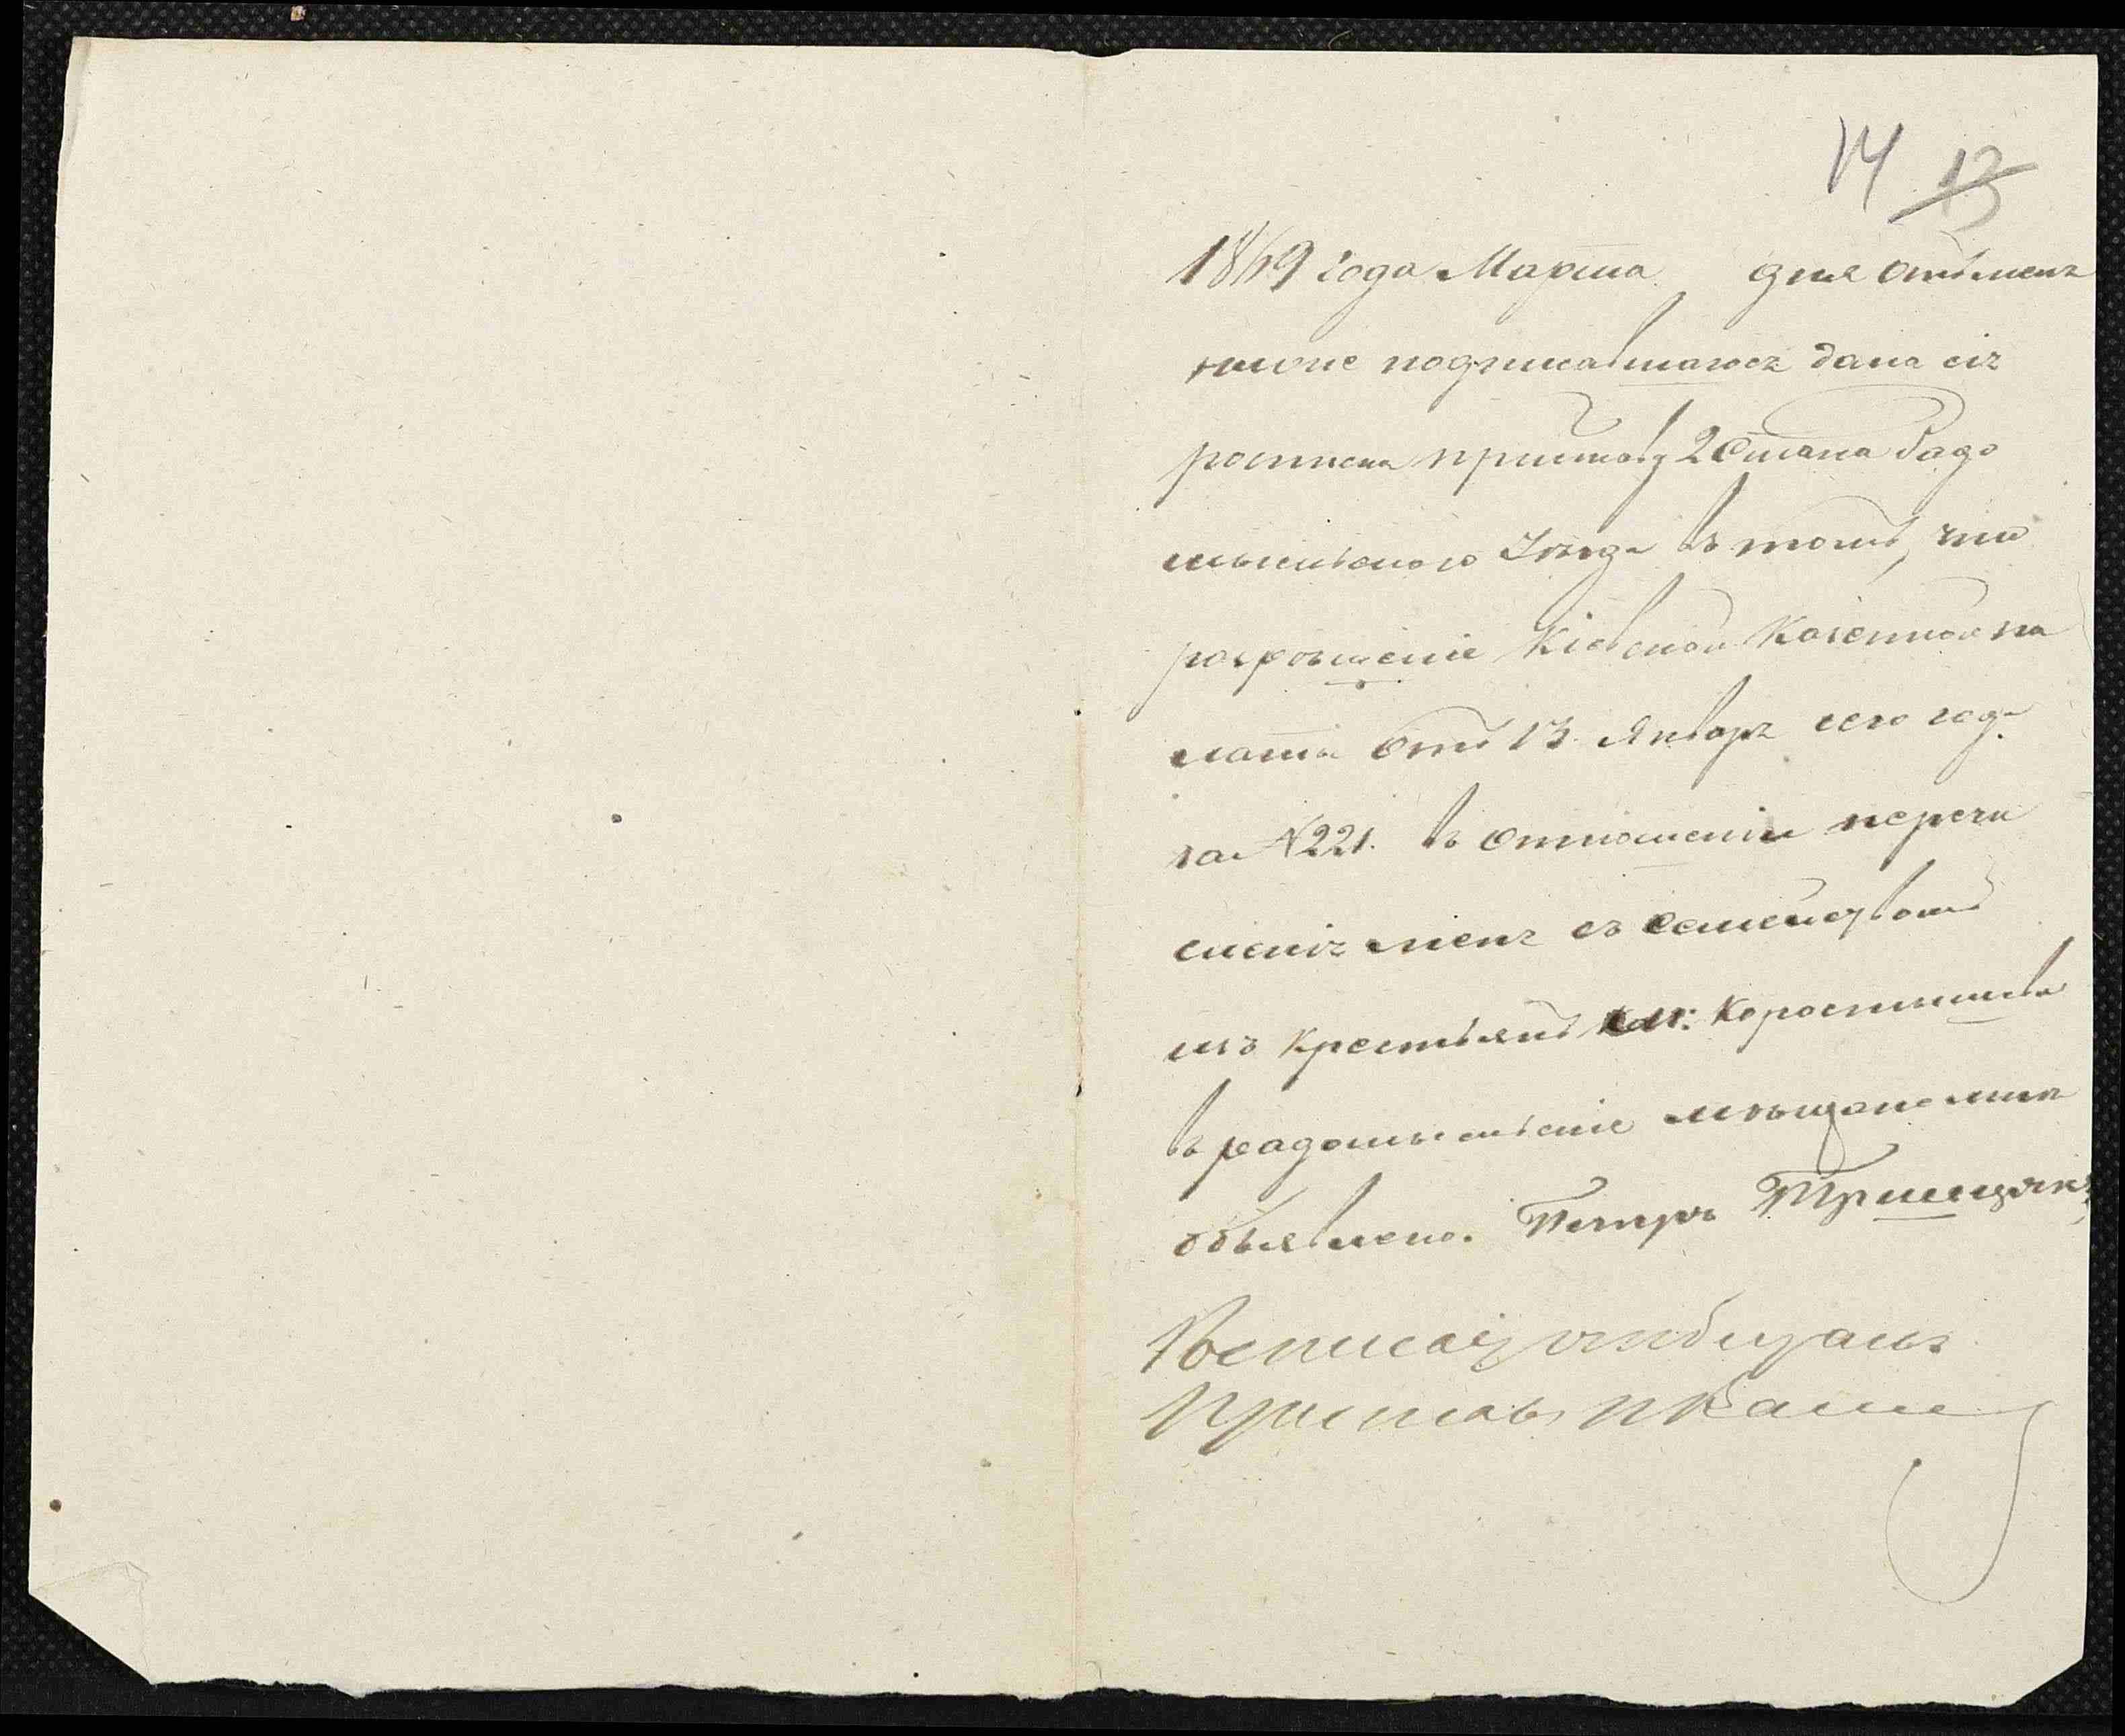 14 13
1869 года Марта дня отъ меня
ниже подписавшагося дана сія
росписка приставу 2 Стана Радо
мысльскаго Уѣзда въ томъ, что
розрѣшеніе Кіевской Казенной па
латы отъ 13 Января сего года
за N 221. въ отношеніи перечи
сленія меня съ семействомъ
изъ Крестьянъ м: Коростышева
въ радомысльскіе мѣщане мнѣ
объявлено. Петръ Трищукъ
Росписку отбиралъ
Приставъ